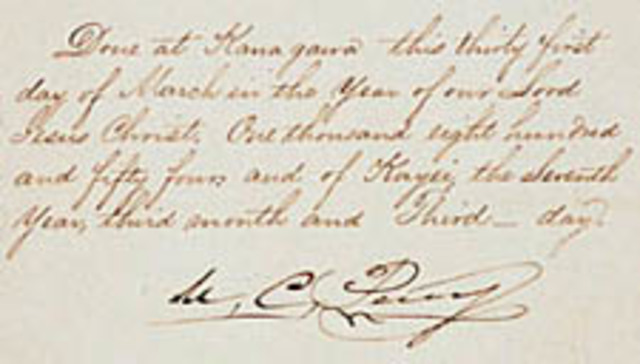 Done at Kanagawa this thirty first
day of March in the Year of our Lord
Jesus Christ, One thousand eight hundred
and fifty four and of Kayei, the Seventh
Year, third month and Third day.
M. C. Perry